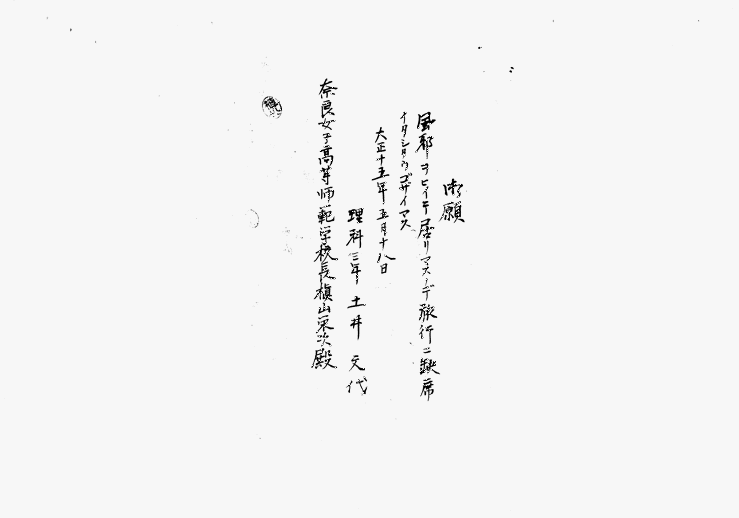 御願
風邪ヲヒイテ居リマスノデ旅行ニ缺席
イタシタウゴザイマス
大正十五年五月十八日
理科三年 土井文代
奈良女子高等師範学校長槇山栄次殿